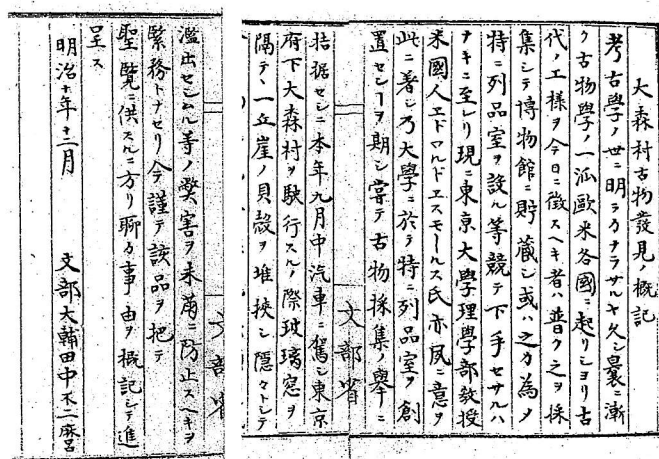 大森村古物發見ノ概記
考古學ノ世ニ明ラカナラサルヤ久シ曩ニ漸
ク古物學ノ一派歐米各國ニ起リシヨリ古
代ノ工様ヲ今日ニ徴スヘキ者ハ普ク之ヲ採
集シテ博物館ニ貯蔵シ或ハ之カ為メ
特ニ列品室ヲ設ル等競テ下手セサルハ
ナキニ至レリ現ニ東京大學理學部教授
米國人エドワルドエスモールス氏亦夙ニ意ヲ
此ニ著シ乃大學ニ於テ特ニ列品室ヲ創
置センヿヲ期シ嘗テ古物採集ノ擧ニ
文部省
拮据セシニ本年九月中汽車ニ駕シ東京
府下大森村ヲ駛行スルノ際玻璃窓ヲ
隔テ一丘崖ノ貝殻ヲ堆挾シ隠々トシテ
文部省
濫出センムル等ノ弊害ヲ未萌ニ防止スヘキヲ
緊務トナセリ今謹テ該品ヲ把テ
聖覧ニ供スルニ方リ聊カ事由ヲ概記シテ進
呈ス
明治十年十二月
文部大輔田中不二麿